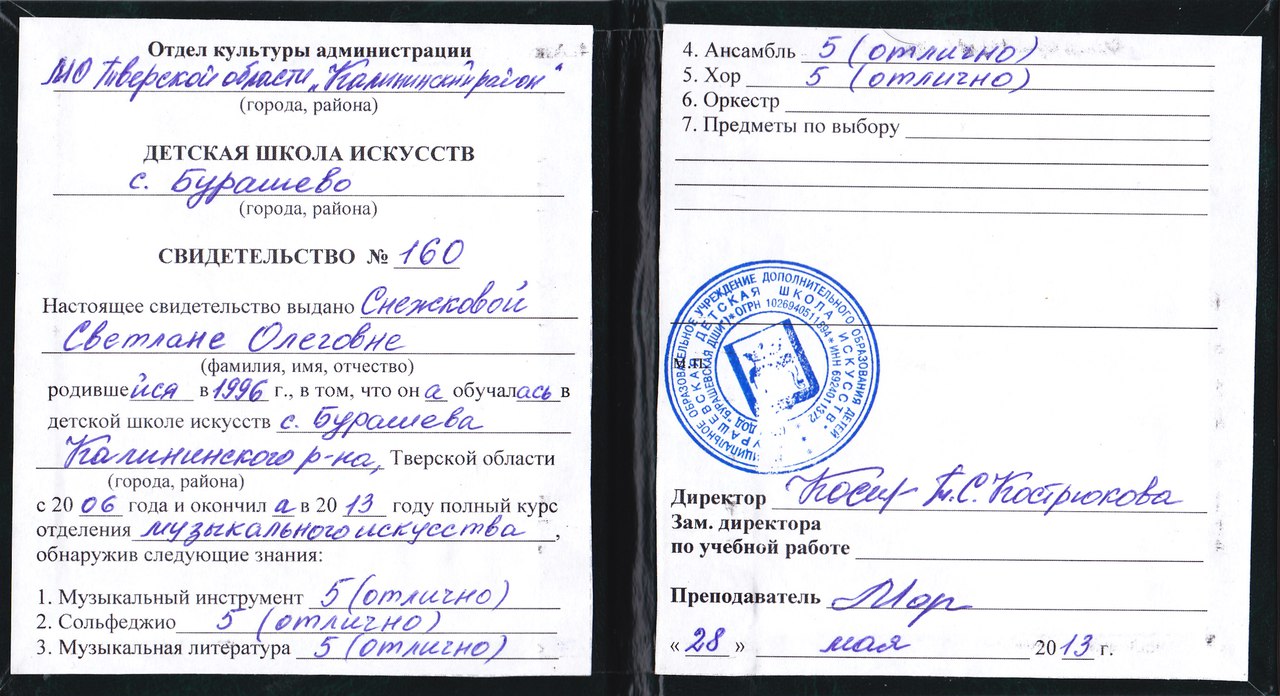 Отдел культуры администрации
МО Тверской области "Калининский район"
(города, района)
ДЕТСКАЯ ШКОЛА ИСКУССТВ
с. Бурашево
(города, района)
СВИДЕТЕЛЬСТВО № 160
Настоящее свидетельство выдано Снежковой
Светлане Олеговне
(фамилия, имя, отчество)
родившейся в 1996 г., в том, что она обучалась в
детской школе искусств с. Бурашева
Калининского р-на, Тверской области
(города, района)
с 2006 года и окончила в 2013 году полный курс
отделения музыкального искусства,
обнаружив следующие знания:
1. Музыкальный инструмент 5 (отлично)
2. Сольфеджио 5 (отлично)
3. Музыкальная литература 5 (отлично)
4. Ансамбль 5 (отлично)
5. Хор 5 (отлично)
6. Оркестр
7. Предметы по выбору
ОБРАЗОВАТЕЛЬНОЕ УЧРЕЖДЕНИЕ ДОПОЛНИТЕЛЬНОГО ОБРАЗОВАНИЯ ДЕТЕЙ
ДЕТСКАЯ ШКОЛА ИСКУССТВ
М.П.
Директор Т.С. Кострюкова
Зам. директора
по учебной работе
Преподаватель
« 28 » мая 2013 г.